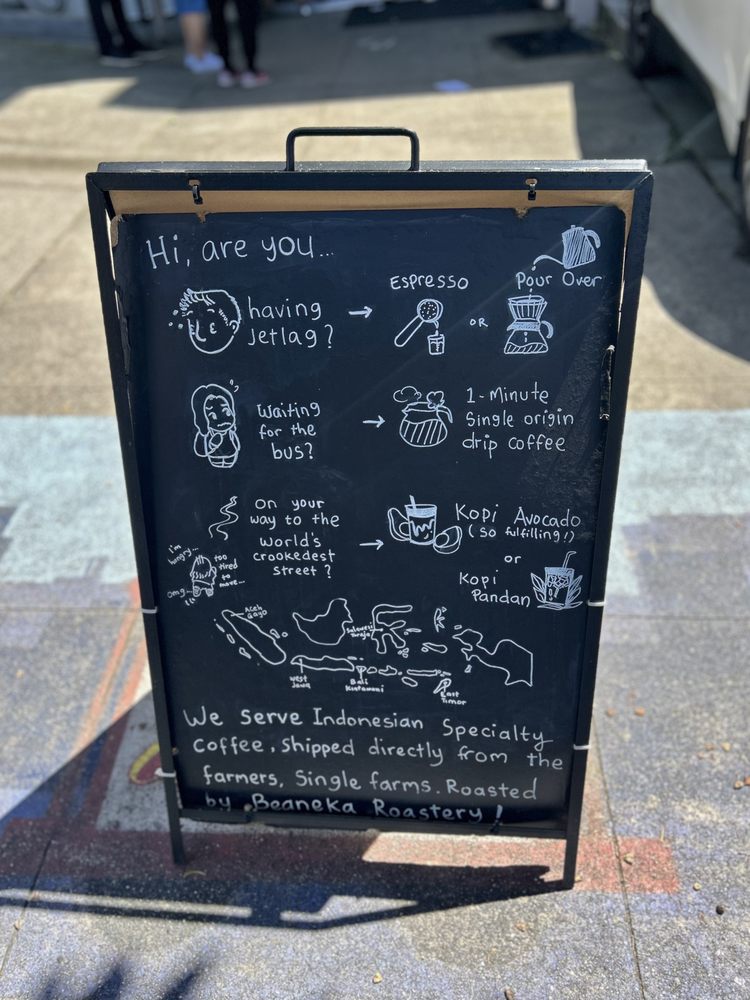 Hi, are you...
having
Jetlag?
Espresso
OR
Pour Over
Waiting
for the
bus?
1-Minute
Single origin
drip coffee
I'm
hungry...
too
tired
to
move...
omg...
on your
way to the
world's
crookedest
street?
Kopi Avocado
(so fulfilling!)
or
Kopi
Pandan
Aceh
Gayo
Sulawesi
Toraja
West
Jawa
Bali
Kintamani
East
Timor
We serve Indonesian Specialty
coffee, shipped directly from the
farmers, Single farms. Roasted
by Beaneka Roastery!